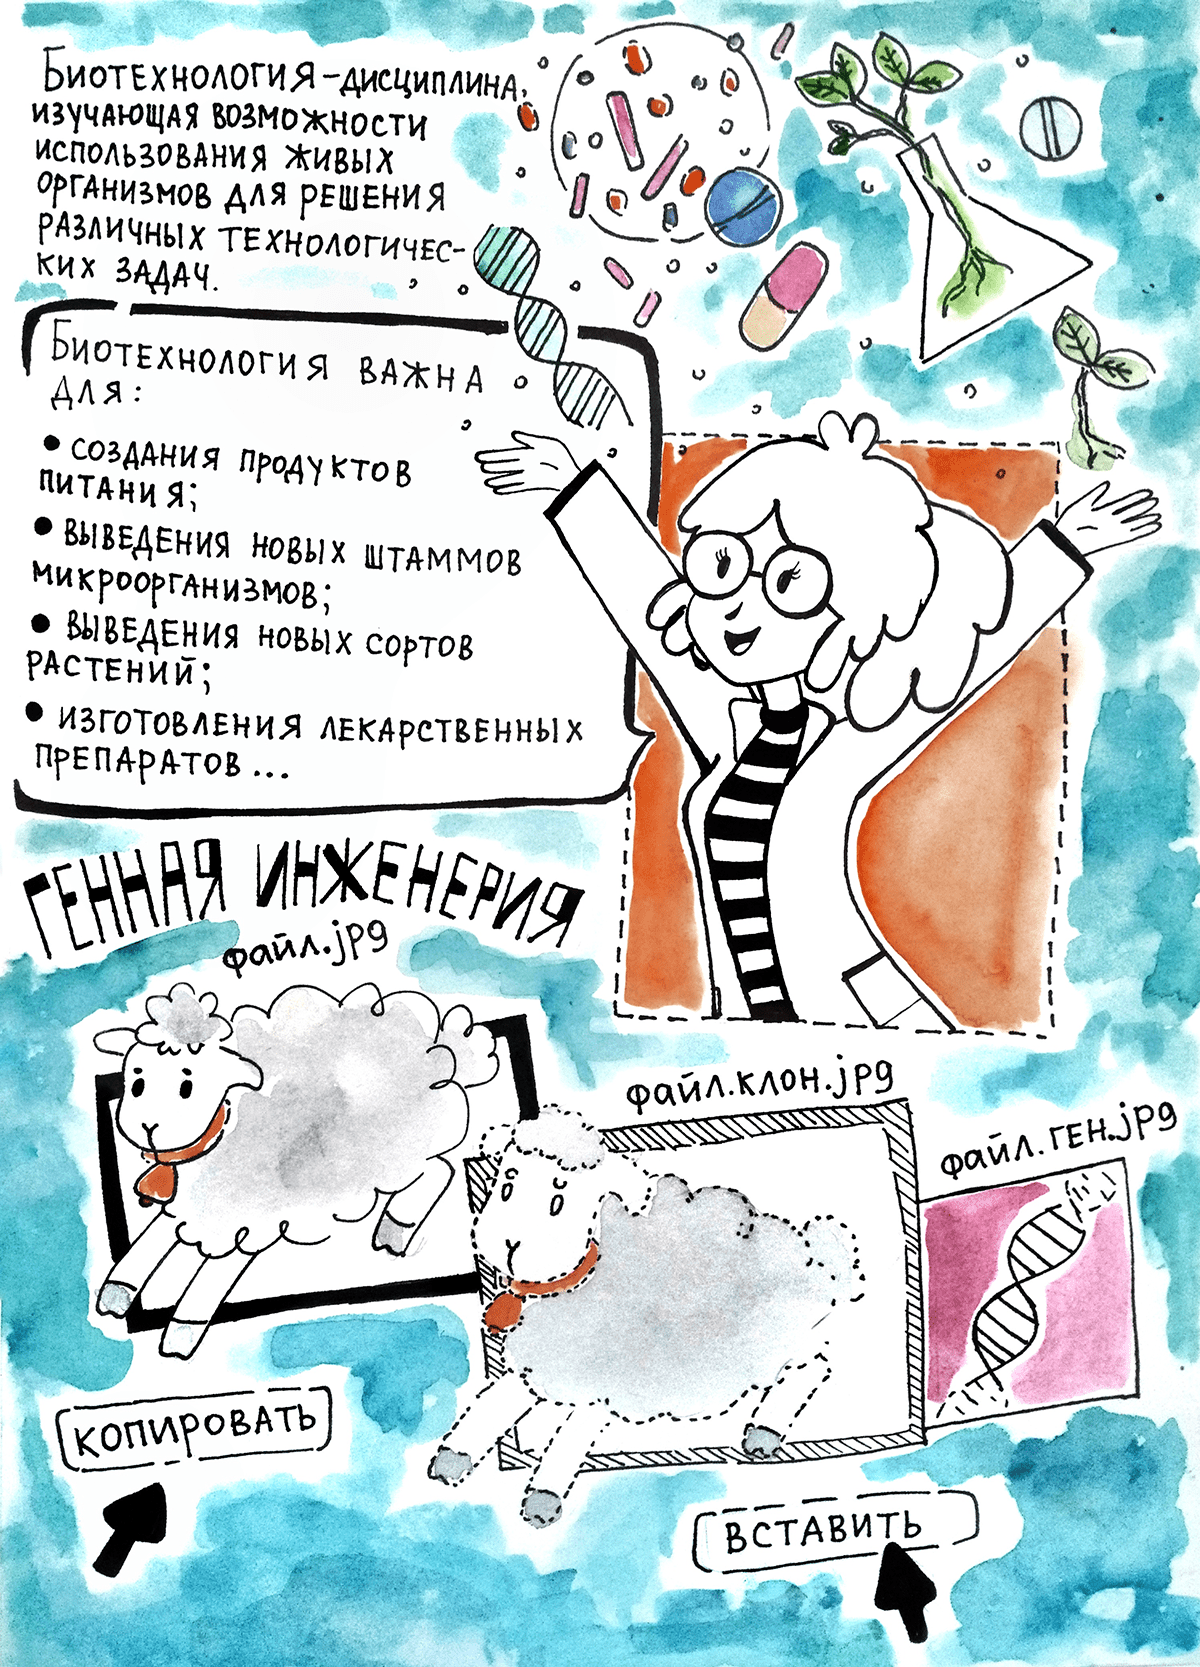 Биотехнология-дисциплина,
изучающая возможности
использования живых
организмов для решения
различных технологичес-
ких задач.
Биотехнология важна
для:
• создания продуктов
питания;
• выведения новых штаммов
микроорганизмов;
• выведения новых сортов
растений;
• изготовления лекарственных
препаратов...
ГЕННАЯ ИНЖЕНЕРИЯ
файл.jpg
файл.клон.jpg
файл.ген.jpg
КОПИРОВАТЬ
ВСТАВИТЬ